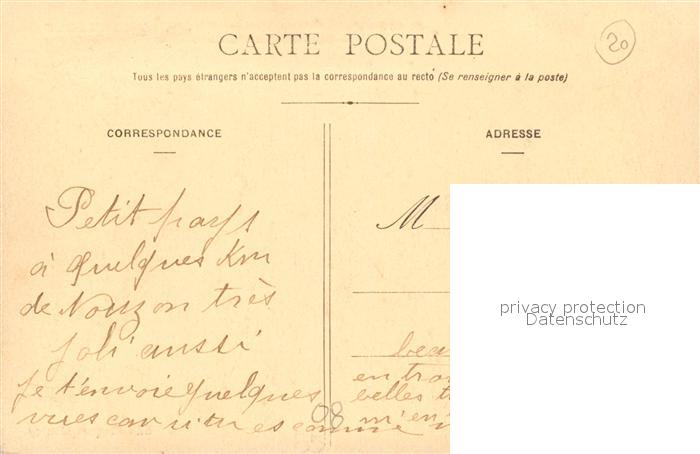 CARTE POSTALE
20
Tous les pays étrangers n'acceptent pas la correspondance au recto (Se renseigner à la poste)
CORRESPONDANCE
Petit pays
à quelques Km
de Nouzon très
joli aussi
je t'envoie quelques
vues car si tu es comme
08
ADRESSE
M
beau
en trou
belles t
m'en
privacy protection
Datenschutz